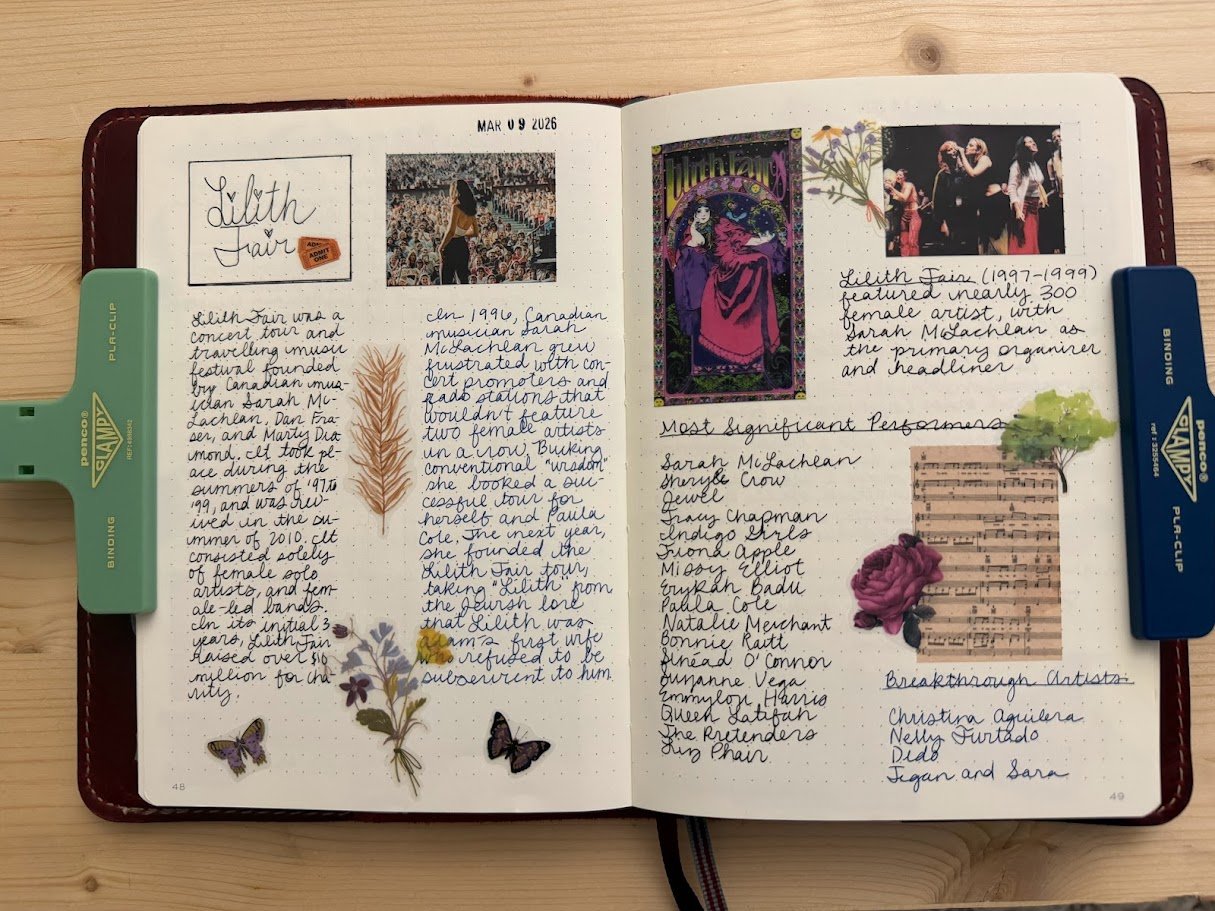 MAR 09 2026
Lilith
Fair
ADMIT
ONE
Lilith Fair was a
concert tour and
travelling music
festival founded
by Canadian mus-
ician Sarah Mc-
Lachlan, Dan Fra-
ser, and Marty Dia
mond. It took pl-
ace during the
summers of '97 to
'99, and was rev-
ived in the su-
mmer of 2010. It
consisted solely
of female solo
artists, and fem-
ale-led bands.
In its initial 3
years, Lilith Fair
raised over $10
million for cha-
rity.
In 1996, Canadian
musician Sarah
McLachlan grew
frustrated with con-
cert promoters and
radio stations that
wouldn't feature
two female artists
in a row. Bucking
conventional "wisdom"
she booked a suc-
cessful tour for
herself and Paula
Cole. The next year,
she founded the
Lilith Fair tour,
taking "Lilith" from
the Jewish lore
that Lilith was
Adam's first wife
who refused to be
subservient to him.
48
Lilith Fair
Lilith Fair (1997-1999)
featured nearly 300
female artist, with
Sarah McLachlan as
the primary organizer
and headliner
Most Significant Performers
Sarah McLachlan
Sheryl Crow
Jewel
Tracy Chapman
Indigo Girls
Fiona Apple
Missy Elliot
Erykah Badu
Paula Cole
Natalie Merchant
Bonnie Raitt
Sinéad O'Connor
Suzanne Vega
Emmylou Harris
Queen Latifah
The Pretenders
Liz Phair
Breakthrough Artists
Christina Aguilera
Nelly Furtado
Dido
Tegan and Sara
49
PLA-CLIP
penco®
CLAMPY
BINDING
BINDING
penco®
CLAMPY
PLA-CLIP